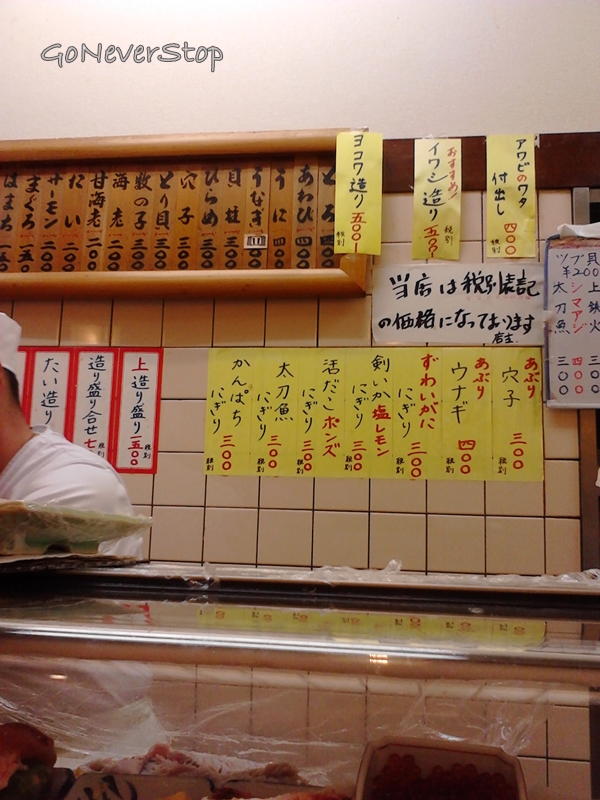 GoNeverStop
アワビのワタ
付出し
四〇〇
税別
おすすめ!
イワシ造り
税別
五〇〇
ヨコワ造り
五〇〇
税別
とろ 四〇〇
あわび 四〇〇
うに 四〇〇
うなぎ 三〇〇
貝柱 三〇〇
ひらめ 三〇〇
穴子 三〇〇
とり貝 三〇〇
数の子 三〇〇
海老 二〇〇
甘海老 二〇〇
たい 二〇〇
サーモン 二〇〇
まぐろ 一五〇
はまち 一五〇
当店は税別表記
の価格になっております
店主
ツブ貝
¥200
上鉄火
シマアジ
三〇〇
太刀魚
三〇〇
あぶり
穴子
三〇〇
税別
あぶり
ウナギ
四〇〇
税別
ずわいがに
にぎり
三〇〇
税別
剣いか塩レモン
にぎり
三〇〇
税別
活だこポンズ
にぎり
三〇〇
税別
太刀魚
にぎり
三〇〇
税別
かんぱち
にぎり
三〇〇
税別
上造り盛り
一五〇〇
税別
造り盛り合せ
七
税別
たい造り